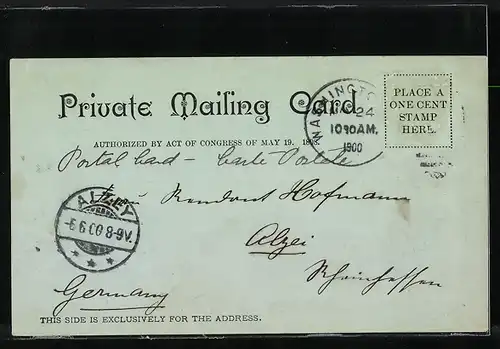 Private Mailing Card
AUTHORIZED BY ACT OF CONGRESS OF MAY 19. 1898.
PLACE A
ONE CENT
STAMP
HERE.
WASHINGTON
24
1030AM.
1900
Postal Card – Carte Postale
Rendant Hofmann
ALZEY
-6.6.00 8-9V.
Alzei
Rheinhessen
Germany
THIS SIDE IS EXCLUSIVELY FOR THE ADDRESS.